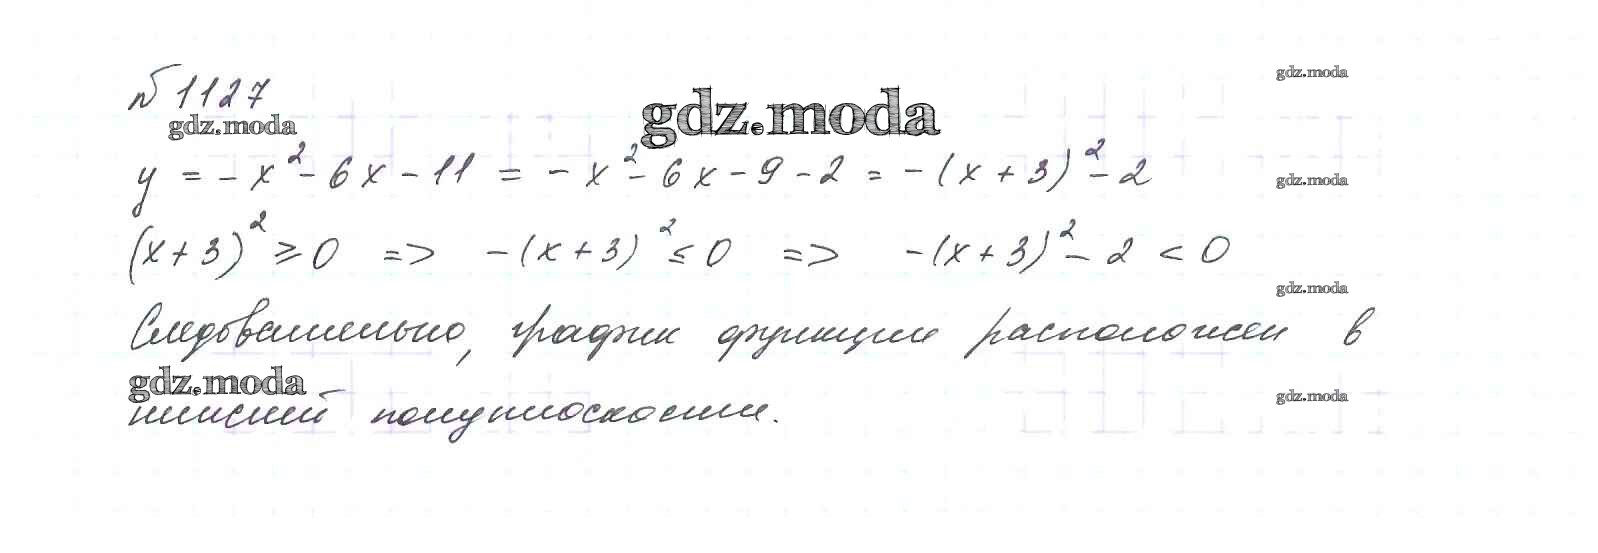 № 1127
gdz.moda
gdz.moda
gdz.moda
y = -x² - 6x - 11 = -x² - 6x - 9 - 2 = -(x + 3)² - 2
gdz.moda
(x + 3)² ≥ 0 => -(x + 3)² ≤ 0 => -(x + 3)² - 2 < 0
gdz.moda
Следовательно, график функции расположен в
gdz.moda
gdz.moda
нижней полуплоскости.